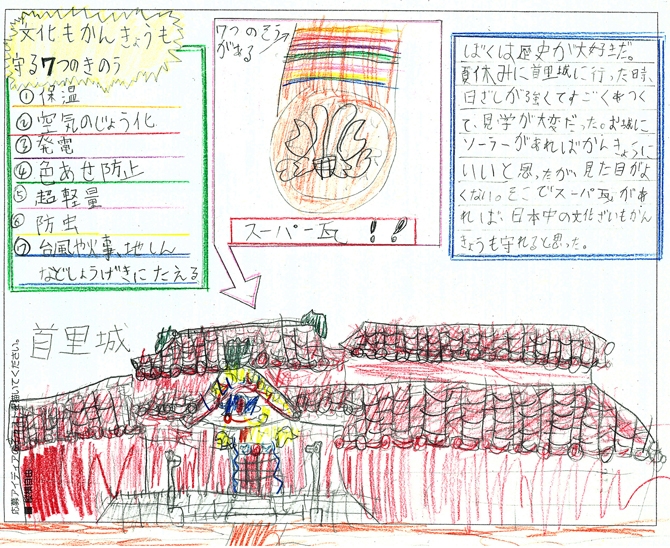 文化もかんきょうも
守る7つのきのう
①保温
②空気のじょう化
③発電
④色あせ防止
⑤超軽量
⑥防虫
⑦台風や火事、地しん
などしょうげきにたえる
7つのそうが
がある
スーパー瓦!!
ぼくは歴史が大好きだ。
夏休みに首里城に行った時、
日ざしが強くてすごくあつく
て、見学が大変だった。お城に
ソーラーがあればかんきょうに
いいと思ったが、見た目がよ
くない。そこでスーパー瓦があ
れば、日本中の文化ざいもかん
きょうも守れると思った。
首里城
応募アイディア
いてください。